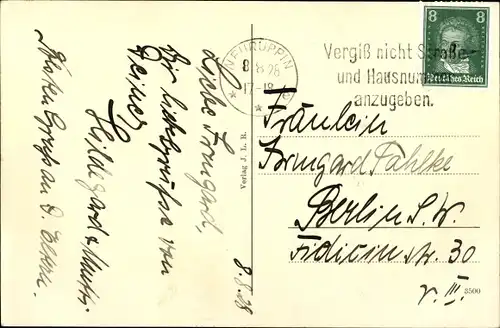 8.8.28
Liebe Irmgard,
Ihr liebe Grüße von
Deiner
Hildegard & Mutti.
Gruß an d. Eltern.
Verlag J. L. R.
NEURUPPIN
8.8.28
17-18
Vergiß nicht Straße
und Hausnum
anzugeben.
8 8
Deutsches Reich
Fräulein
Irmgard Pahlke
Berlin S.W.
Fidicinstr. 30
v. III.
3500